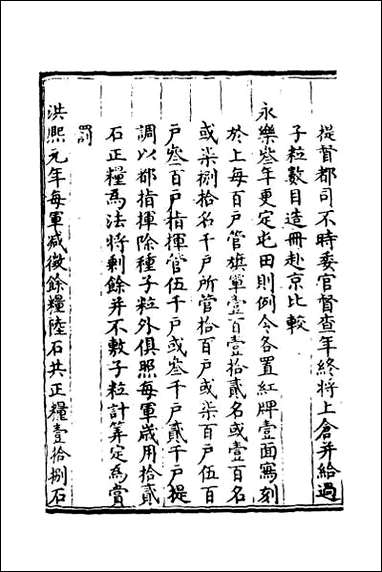 從督都司不時委官督查年終將上倉并給過
子粒數目造冊赴京比較
永樂叁年更定屯田則例令各置紅牌壹面寫刻
於上每百戶管旗軍壹百壹拾貳名或壹百名
或柒捌拾名千戶所管拾百戶或柒百戶伍百
戶叁百戶指揮管伍千戶或叁千戶貳千戶提
調以都指揮除種子粒外俱照每軍歲用拾貳
石正糧為法將剩餘并不敷子粒計筭定為賞
罰
洪熙元年每軍减徵餘糧陸石共正糧壹拾捌石